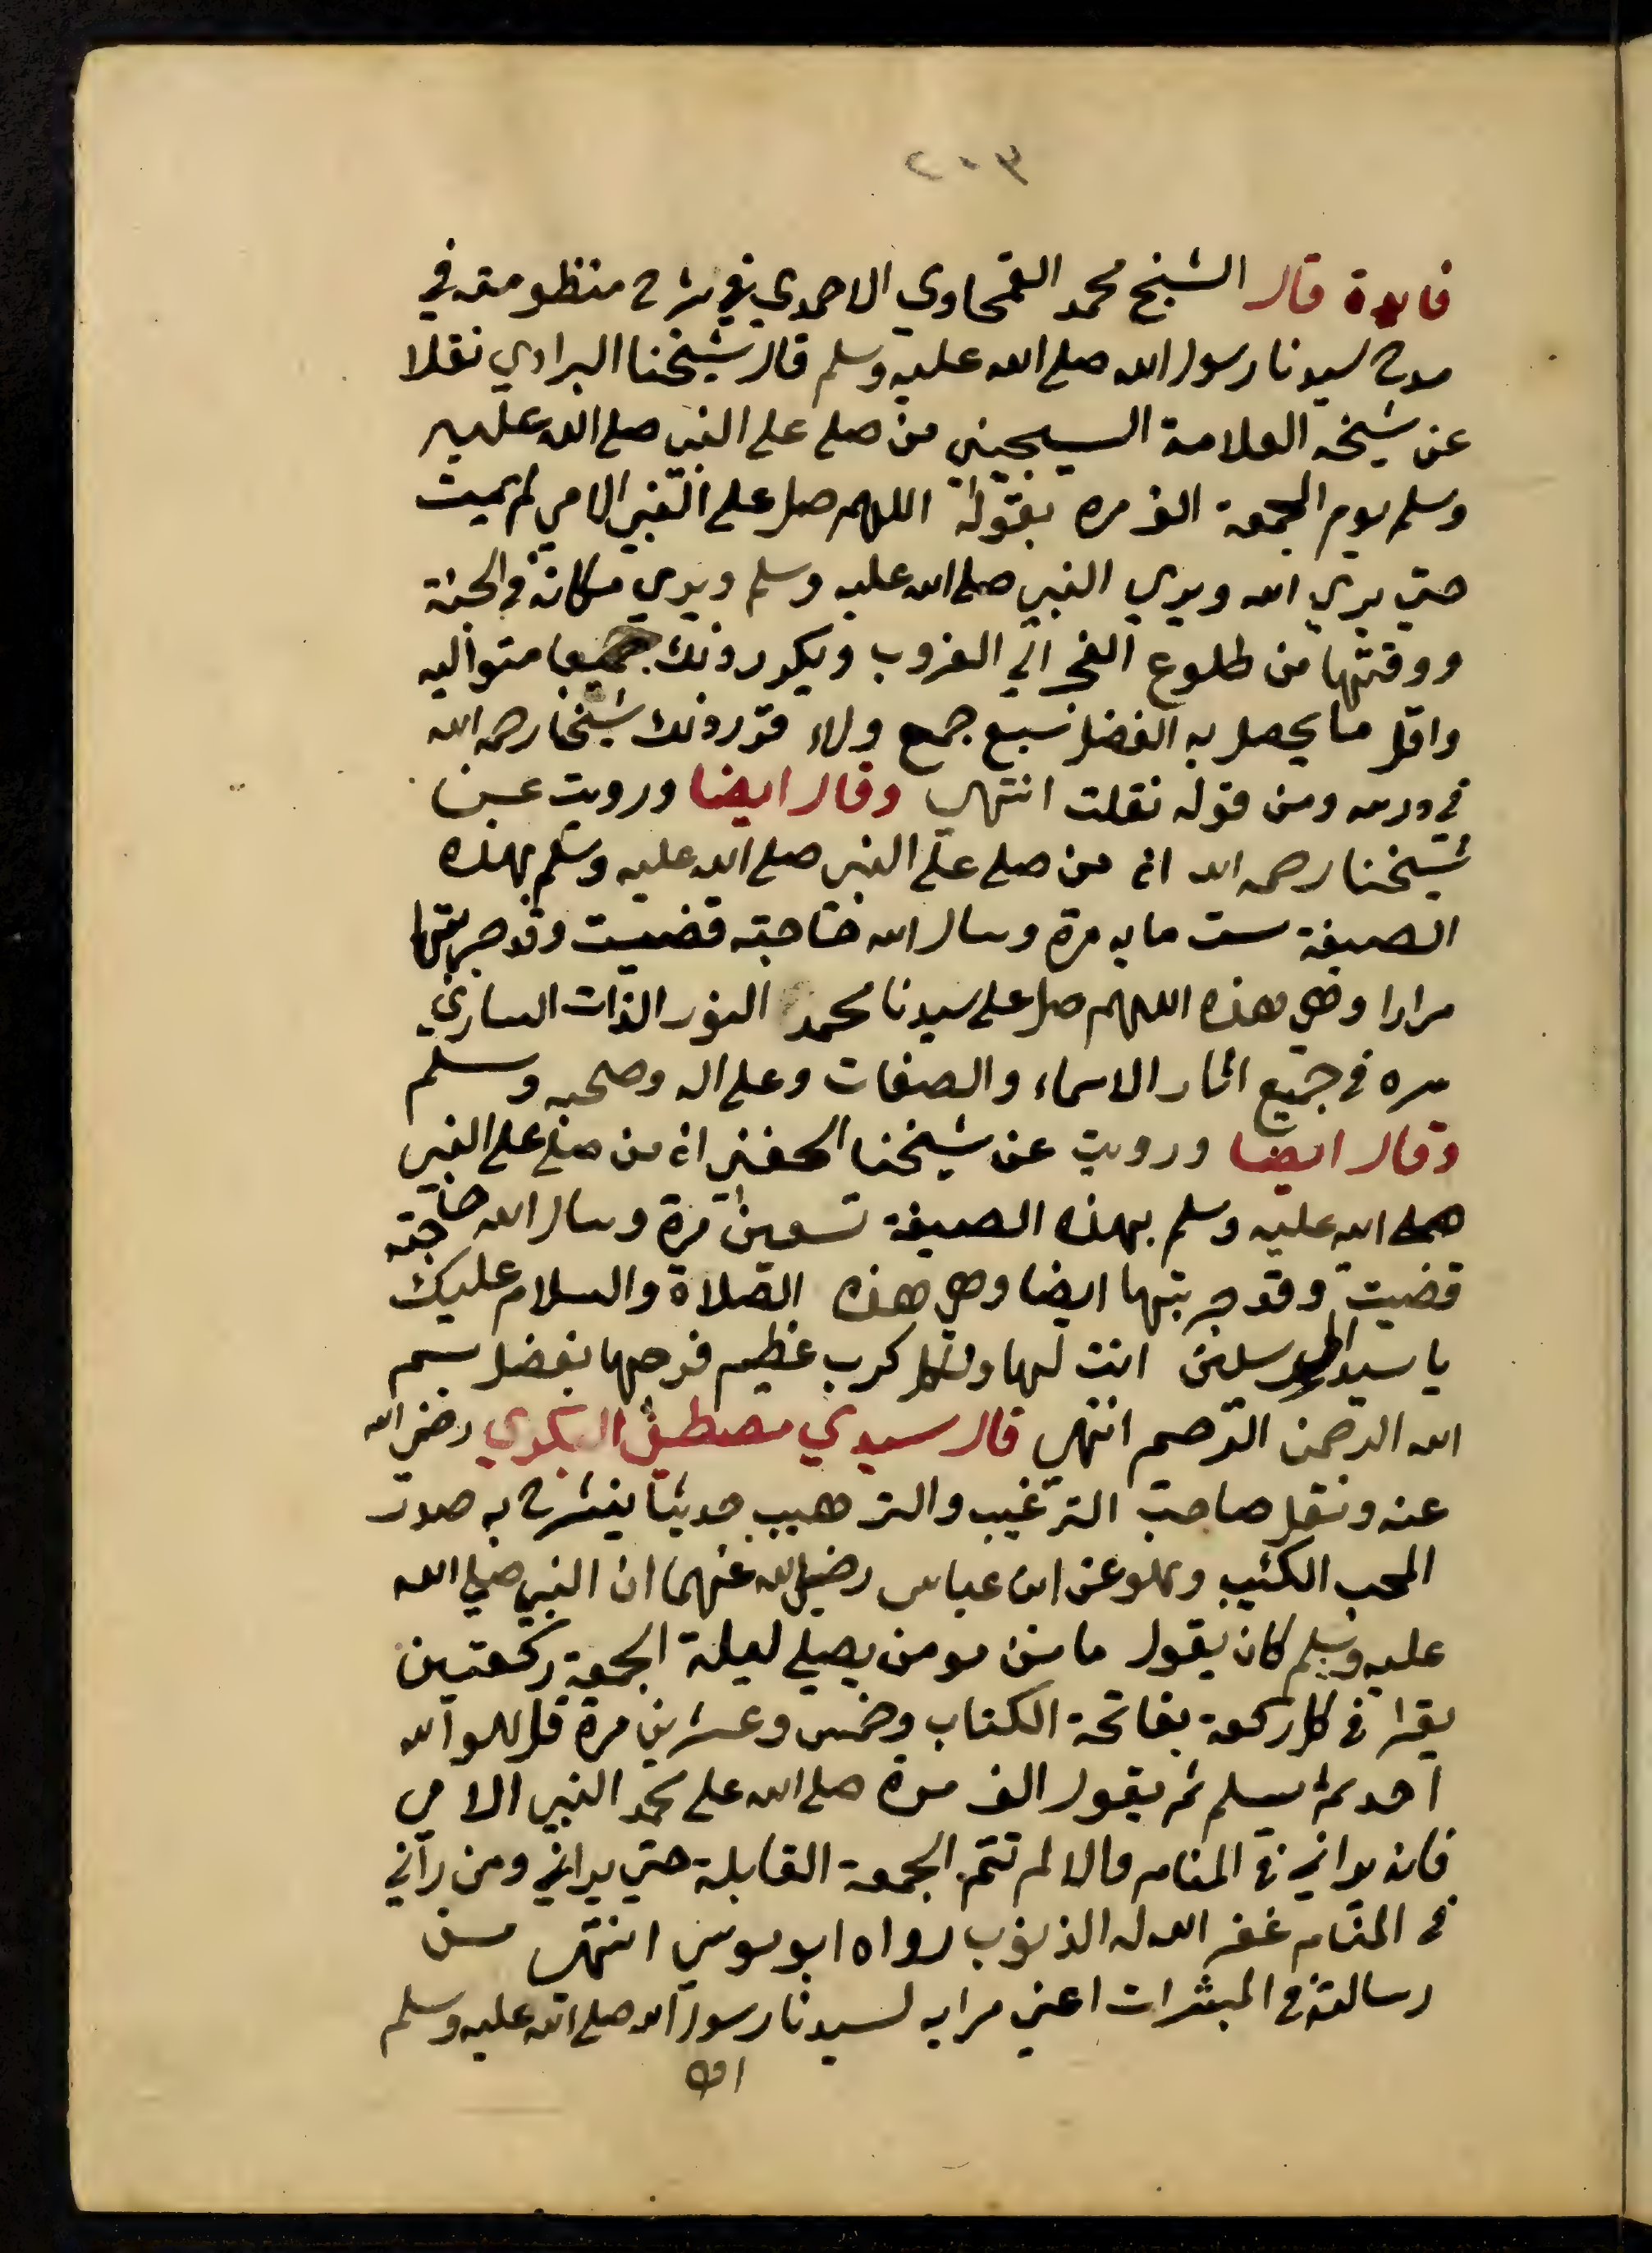 ٢٠٣
فايدة قال الشيخ محمد القمحاوي الاحمدي في شرح منظومته في
مدح سيدنا رسول الله صلى الله عليه وسلم قال شيخنا البراوي نقلا
عن شيخه العلامة السجيني من صلى على النبي صلى الله عليه
وسلم يوم الجمعة الف مره بقوله اللهم صل على النبي الامي لم يمت
حتى يري الله ويري النبي صلى الله عليه وسلم ويري مكانه في الجنة
ووقتها من طلوع الفجر الي الغروب ويكرر ذلك جمعا متواليه
واقل ما يحصل به الفضل سبع جمع ولاء قرر ذلك شيخنا رحمه الله
في درسه ومن قوله نقلت انتهى وقال ايضا ورويت عن
شيخنا رحمه الله انه من صلى على النبي صلى الله عليه وسلم بهذه
الصيغة ست مايه مرة وسال الله حاجته قضيت وقد جربتها
مرارا وهي هذه اللهم صل على سيدنا محمد النور الذات الساري
سره في جميع اثار الاسماء والصفات وعلى اله وصحبه وسلم
وقال ايضا ورويت عن شيخنا الحفني انه من صلى على النبي
صلى الله عليه وسلم بهذه الصيغة تسعين مرة وسال الله حاجته
قضيت وقد جربتها ايضا وهي هذه الصلاة والسلام عليك
يا سيد المرسلين انت لها ولكل كرب عظيم فرجها بفضل بسم
الله الرحمن الرحيم انتهى قال سيدي مصطفى البكري رضي الله
عنه ونقل صاحب الترغيب والترهيب حديثا ينشرح به صدر
المحب الكئيب وهو عن ابن عباس رضي الله عنهما ان النبي صلى الله
عليه وسلم كان يقول ما من مومن يصلي ليلة الجمعة ركعتين
يقرا في كل ركعة بفاتحة الكتاب وخمس وعشرين مرة قل هو الله
احد ثم يسلم ثم يقول الف مرة صلى الله على محمد النبي الامي
فانه يراني في المنام والا لم تتم الجمعة القابلة حتى يراني ومن رآني
في المنام غفر الله له الذنوب رواه ابو موسي انتهى من
رسالته في المبشرات اعني مرايه لسيدنا رسول الله صلى الله عليه وسلم